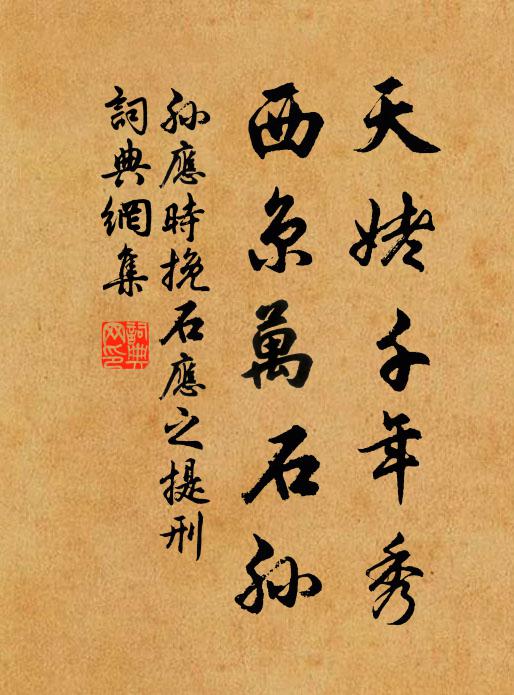 天姥千年秀
西京萬石孫
孫應時挽石應之提刑
詞典網集
詞典
网印